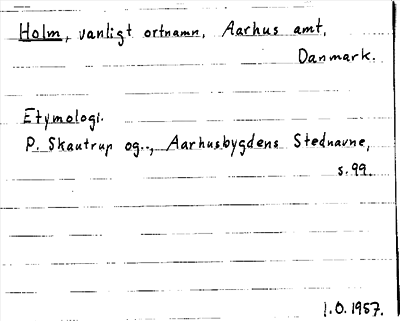 Holm, vanligt ortnamn, Aarhus amt,
Danmark.
Etymologi.
P. Skautrup og.., Aarhusbygdens Stednavne,
s.99.
1.O.1957.